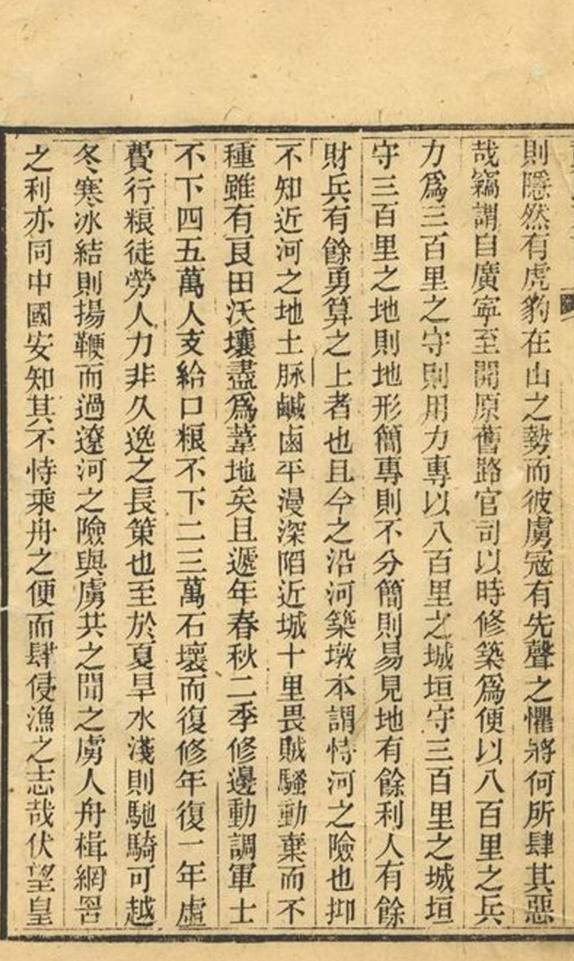 則隱然有虎豹在山之勢而彼虜寇有先聲之懼將何所肆其惡
哉竊謂自廣寧至開原舊路官司以時修築爲便以八百里之兵
力爲三百里之守則用力專以八百里之城垣守三百里之城垣
守三百里之地則地形簡專則不分簡則易見地有餘利人有餘
財兵有餘勇算之上者也且今之沿河築墩本謂恃河之險也抑
不知近河之地土脉鹹鹵平漫深陷近城十里畏賊騷動棄而不
種雖有良田沃壤盡爲葦地矣且遞年春秋二季修邊動調軍士
不下四五萬人支給口粮不下二三萬石壞而復修年復一年虛
費行粮徒勞人力非久逸之長策也至於夏旱水淺則馳騎可越
冬寒冰結則揚鞭而過遼河之險與虜共之聞之虜人舟楫網罟
之利亦同中國安知其不恃乘舟之便而肆侵漁之志哉伏望皇